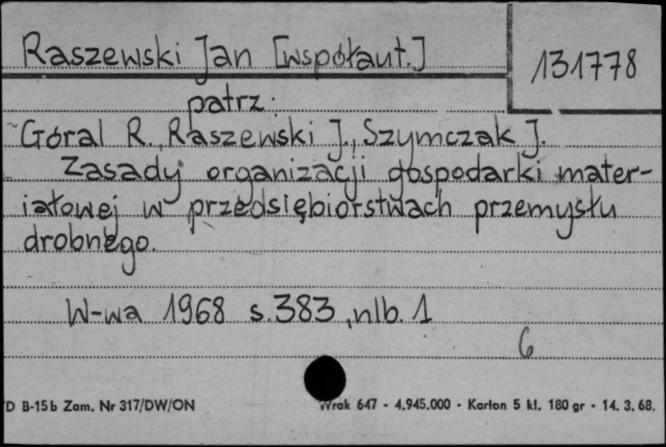 Raszewski Jan [współaut.]
131778
patrz:
Góral R., Raszewski J., Szymczak J.
Zasady organizacji gospodarki mater-
iałowej w przedsiębiorstwach przemysłu
drobnego.
W-wa 1968 s. 383, nlb. 1
6
D B-15b Zam. Nr 317/DW/ON
Wrak 647 - 4.945.000 - Karton 5 kl. 180 gr - 14. 3. 68.